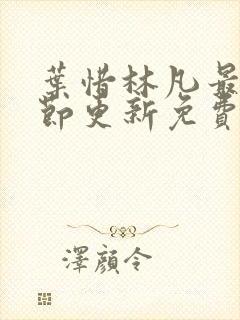 葉惜林凡最
節更新免費
澤顏令